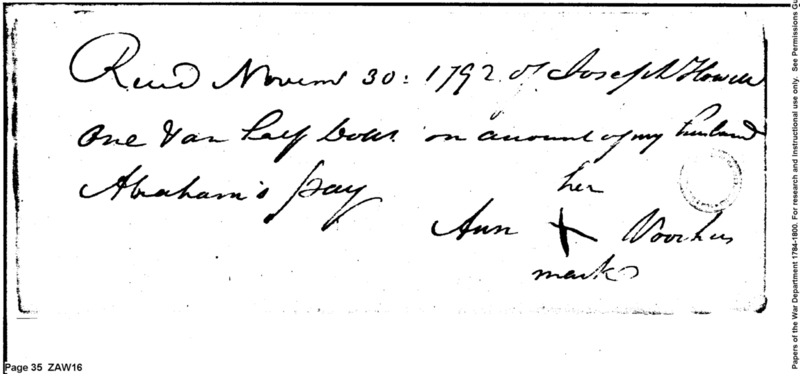 Recd Novemr 30: 1792 of Joseph Howell
one & an half Dollr on account of my husband
Abraham's pay
her
Ann X Voorhies
mark
Page 35 ZAW16
Papers of the War Department 1784-1800. For research and instructional use only. See Permissions Gu